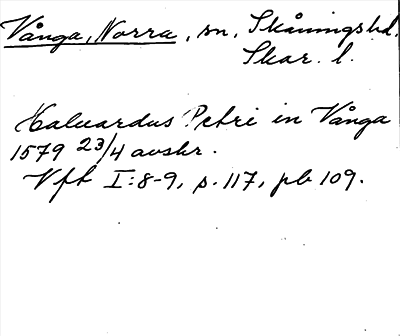 Vånga, Norra, sn, Skånings hd.
Skar. l.
Haluardus Petri in Vånga
1579 23/4 avskr.
Vft I:8-9, s. 117, pb 109.